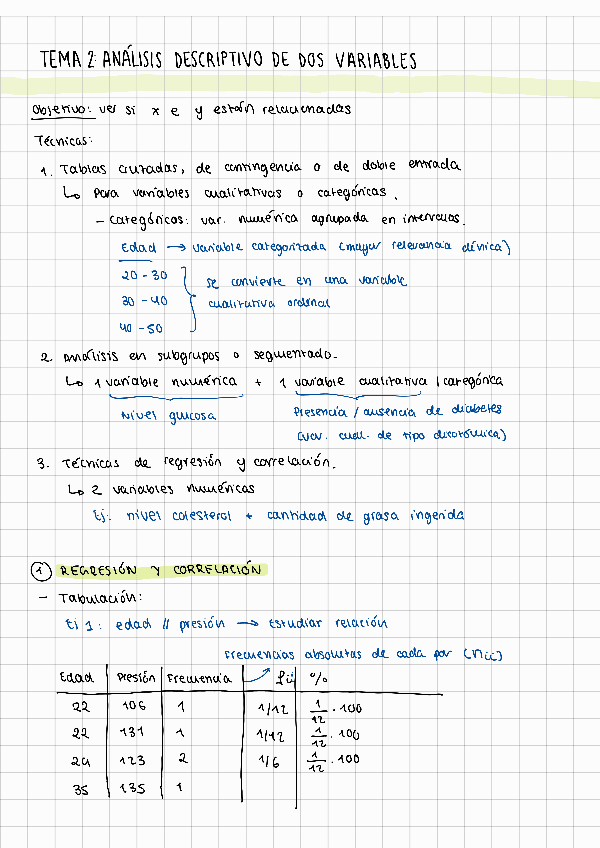 TEMA 2: ANÁLISIS DESCRIPTIVO DE DOS VARIABLES
Objetivo: ver si x e y están relacionadas
Técnicas:
1. Tablas cruzadas, de contingencia o de doble entrada
↳ Para variables cualitativas o categóricas.
- Categóricas: var. numérica agrupada en intervalos.
Edad → variable categorizada (mayor relevancia clínica)
20 - 30
se convierte en una variable
30 - 40
cualitativa ordinal
40 - 50
2. Análisis en subgrupos o segmentado.
↳ 1 variable numérica + 1 variable cualitativa / categórica
Nivel glucosa
Presencia / ausencia de diabetes
(var. cual. de tipo dicotómica)
3. Técnicas de regresión y correlación.
↳ 2 variables numéricas
Ej: nivel colesterol + cantidad de grasa ingerida
1 REGRESIÓN Y CORRELACIÓN
- Tabulación:
Ej 1: edad // presión → Estudiar relación
Frecuencias absolutas de cada par (nij)
Edad Presión Frecuencia fij %
22 106 1 1/12 1/12 · 100
22 131 1 1/12 1/12 · 100
24 123 2 1/6 1/12 · 100
35 135 1